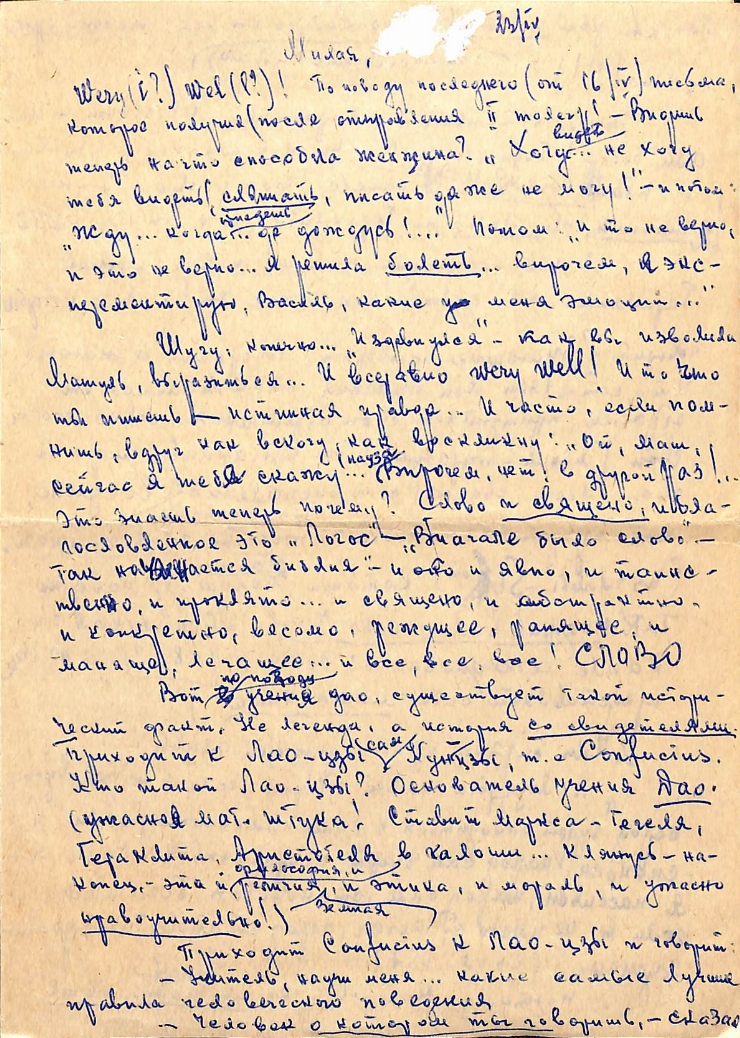 23/IV
Милая,
Wery (i?) Wel (l?)! По поводу последнего (от 16/IV) письма,
которое получил (после отправления II толст)! – Видишь
теперь на что способна женжина? „Хочу... видеть не хочу
тебя видеть, слышать, писать даже не могу!" – и потом:
„Жду... когда... приедешь да дождусь!..." Потом: „и то не верно,
и это не верно... Я решила болеть... впрочем, я экс-
перементирую, Василь, какие у меня эмоции..."
Шучу, конечно... „Издевнулся" – как вы изволили
Машуль, выразиться... И всё равно Wery Well! И то что
ты пишешь – истинная правда... И часто, если пом-
нишь, вдруг как вскочу, как воскликну: „От, маш,
сейчас я тебе скажу... (пауза) Впрочем, нет! в другой раз!..
Это знаешь теперь почему? Слово и священо, и бла-
гословленное это „Логос" – „Вначале было слово" –
так начинается библия" – и оно и явно, и таинс-
твенно, и проклято... и священо, и абстрактно,
и конкретно, весомо, режущее, ранящее, и
манящее, лечащее... и все, все, все! СЛОВО
Вот по поводу учения дао, существует такой истори-
ческий факт. Не легенда, а история со свидетелями.
Приходит к Лао-цзы сам Кунцзы, т.е Confucius.
Кто такой Лао-цзы? Основатель учения Дао.
(ужасная мат. штука! Ставит Маркса – Гегеля,
Гераклита, Аристотеля в калоши... Клянусь – на-
конец, – эта и философия, и религия, и этика, и мораль, и ужасно
земная
нравоучительно!)
Приходит Confucius к Лао-цзы и говорит:
– Учитель, научи меня... какие самые лучшие
правила человеческого поведения
– Человек о котором ты говоришь, – сказал